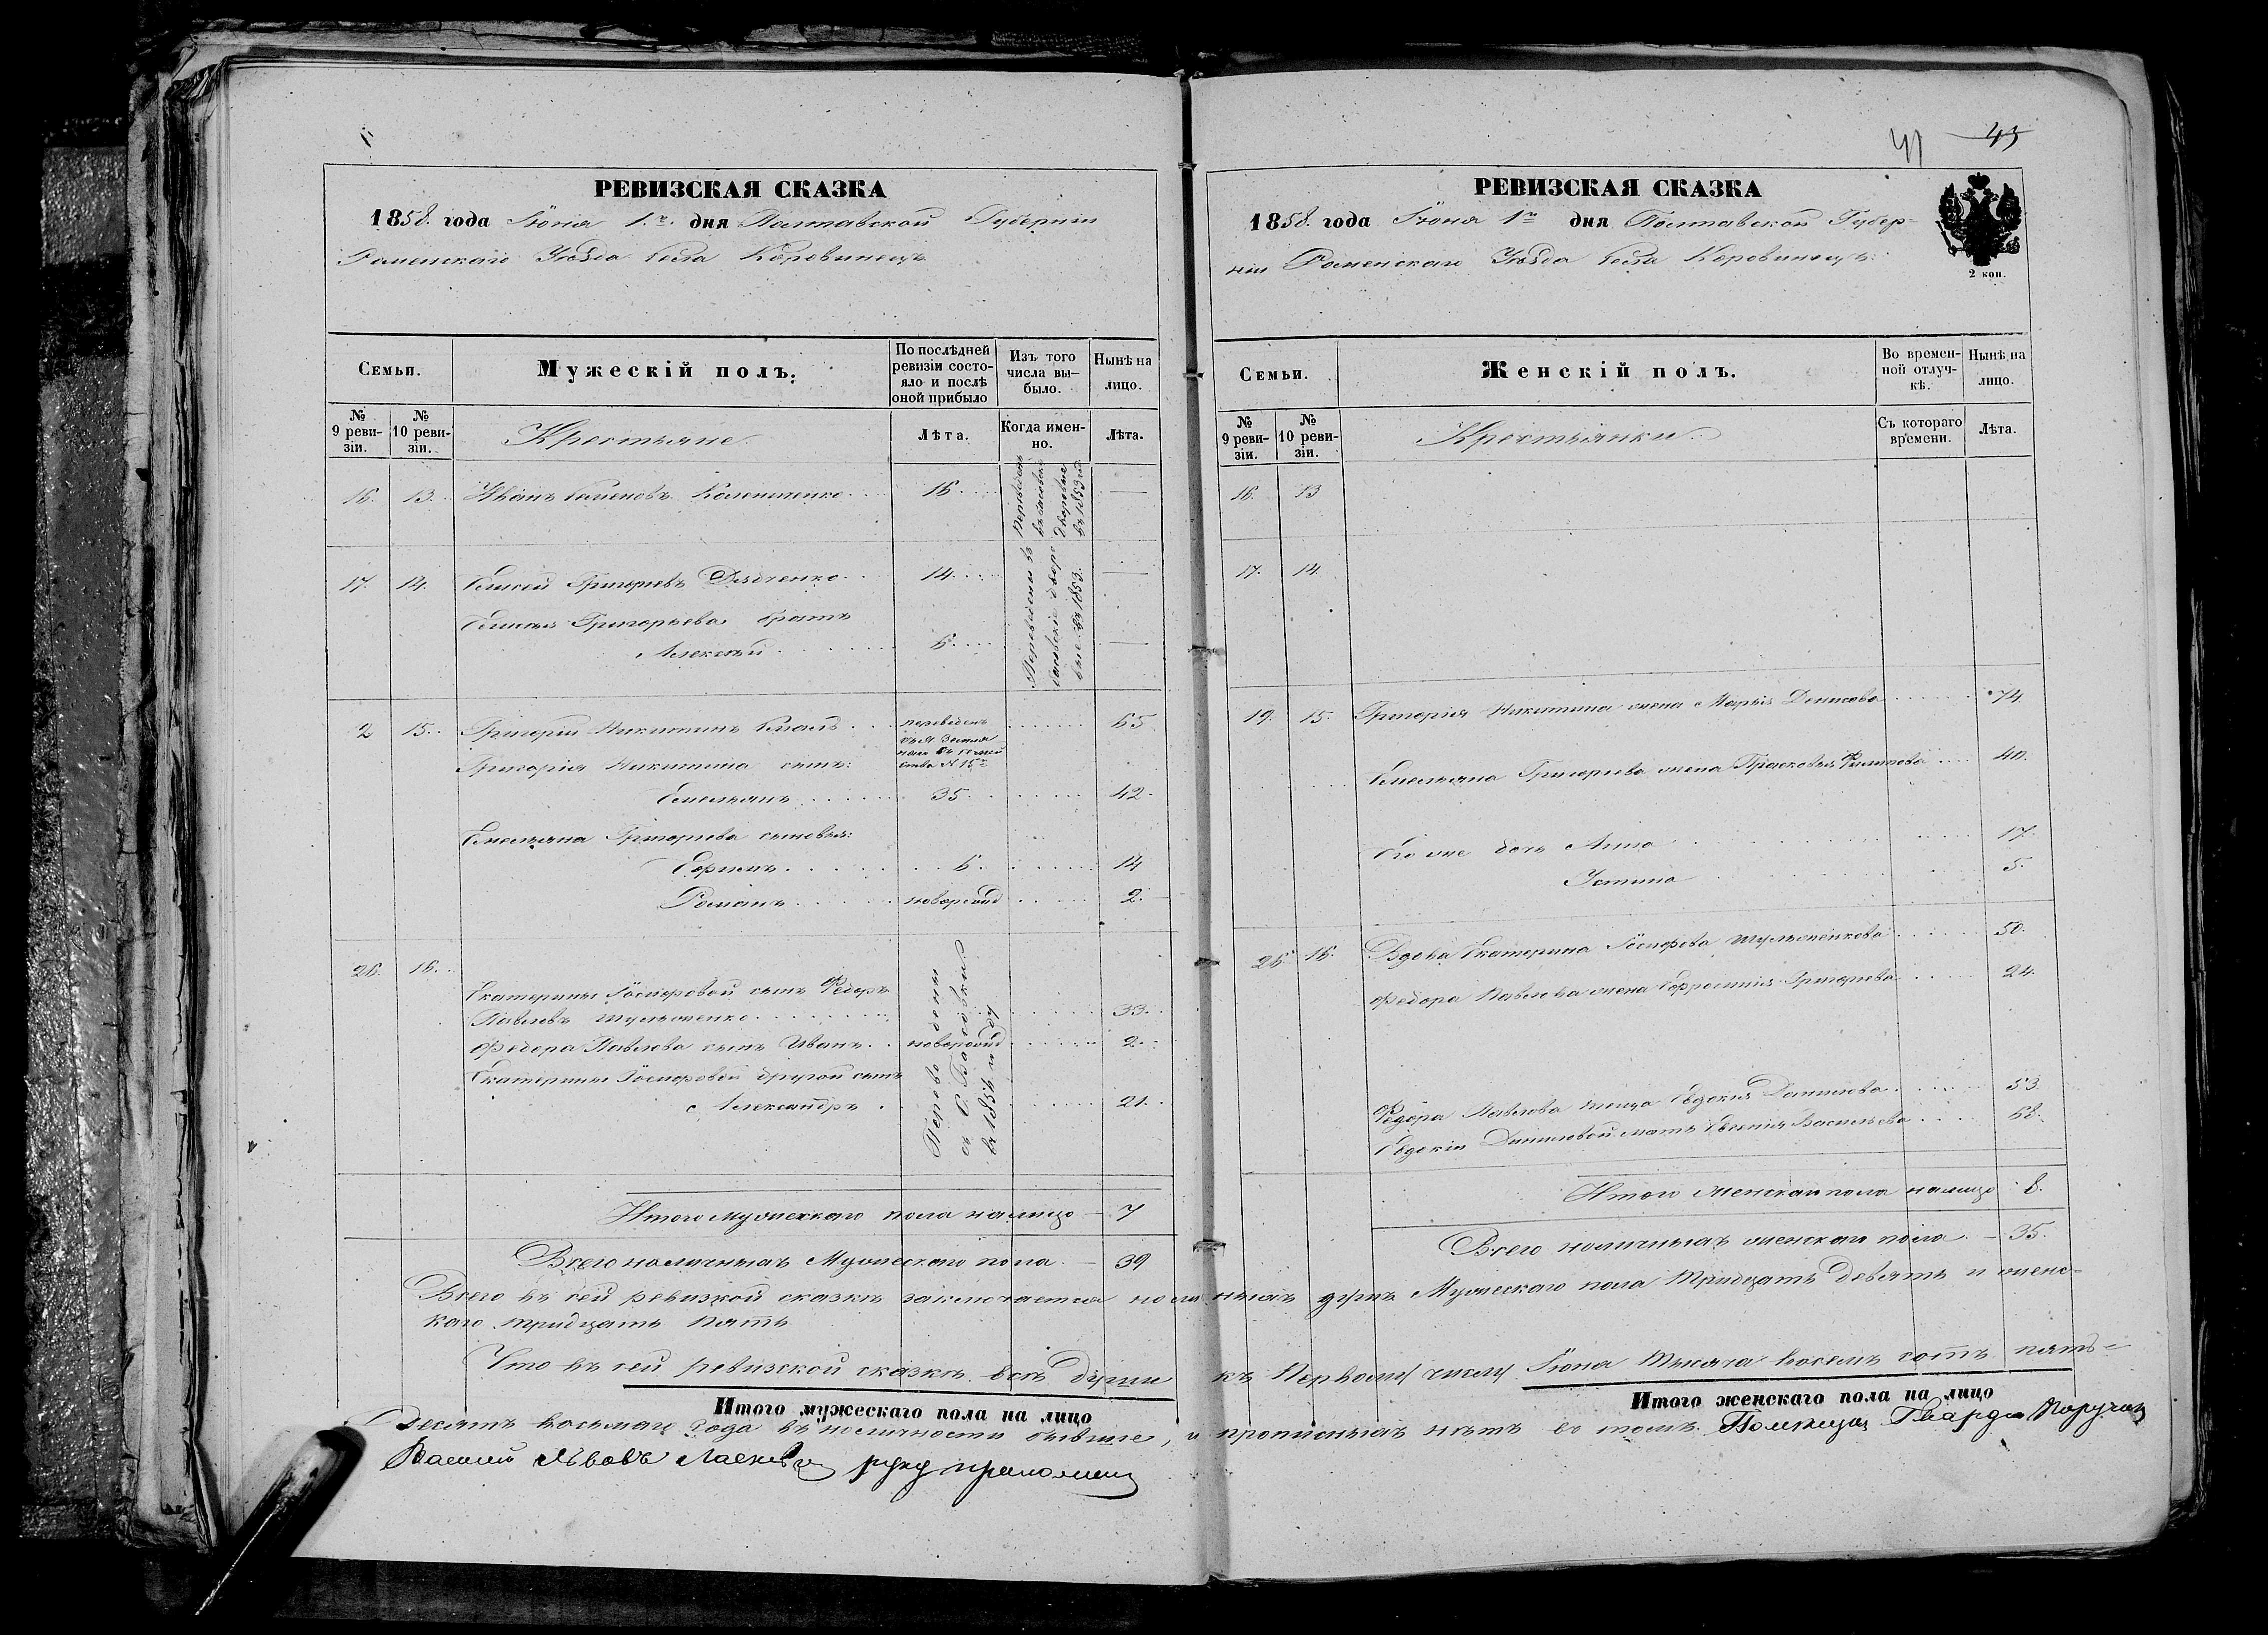 РЕВИЗСКАЯ СКАЗКА
1858. года Іюня 1.го дня Полтавской Губерніи
Роменскаго Уѣзда Села Коровинецъ
Семьи.
Мужескій полъ.
По послѣдней ревизіи состояло и послѣ оной прибыло
Изъ того числа выбыло.
Нынѣ на лицо.
№ 9 ревизіи.
№ 10 ревизіи.
Крестьяне.
Лѣта.
Когда именно.
Лѣта.
16. 13. Иванъ Семеновъ 16. — въ 1853 год.
17. 14. Елисей Григорьевъ Дядченко. 14. —
Елисея Григорьева братъ
Алексѣй 6. —
Переведены въ дворовые въ 1853.
2 15. Григорій Никитинъ 65
переведенъ
Григорія Никитина сынъ:
Емельянъ 35. 42.
Емельяна Григорьева сыновья:
Ефимъ 6. 14
Романъ новорожд 2.
26. 16.
Екатерины Іосифовой сынъ Федоръ
Павловъ Шульженко 33.
Федора Павлова сынъ Иванъ новорожд 2.
Екатерины Іосифовой другой сынъ
Александръ 21.
Переведены
въ 1854 году
Итого Мужескаго пола налицо — 7
Всего наличныхъ Мужескаго пола — 39
РЕВИЗСКАЯ СКАЗКА
1858. года Іюня 1го дня Полтавской Губер-
ніи Роменскаго Уѣзда Села Коровинецъ
2 коп.
41 43
Семьи.
Женскій полъ.
Во временной отлучкѣ.
Нынѣ на лицо.
№ 9 ревизіи.
№ 10 ревизіи.
Крестьянки
Съ котораго времени.
Лѣта.
16. 13
17. 14.
19. 15. Григорія Никитина жена Марья Денисова 74
Емельяна Григорьева жена Прасковья Филипова 40.
Ево же дочь Анна 17.
Устина 5.
26 16. Вдова Екатерина Іосифова Шульженкова 50.
Федора Павлова жена Ефросинія Григорьева 24.
Федора Павлова теща Евдокія Данилова 53.
Евдокіи Даниловой мать Евгенія Васильева 68.
Итого женскаго пола налицо 8.
Всего наличныхъ женскаго пола — 35.
Всего въ сей ревизкой сказкѣ заключается наличныхъ душъ Мужескаго пола тридцать девять и женс-
каго тридцать пять
Что въ сей ревизской сказкѣ всѣ души къ Первому числу Іюня тысяча восемь сотъ пять-
Итого мужескаго пола на лицо
Итого женскаго пола на лицо
десятъ восьмаго года въ наличности бывшіе, и прописныхъ нѣтъ въ томъ. Помѣщикъ Гвардіи Поручикъ
Василій Львовъ руку приложилъ